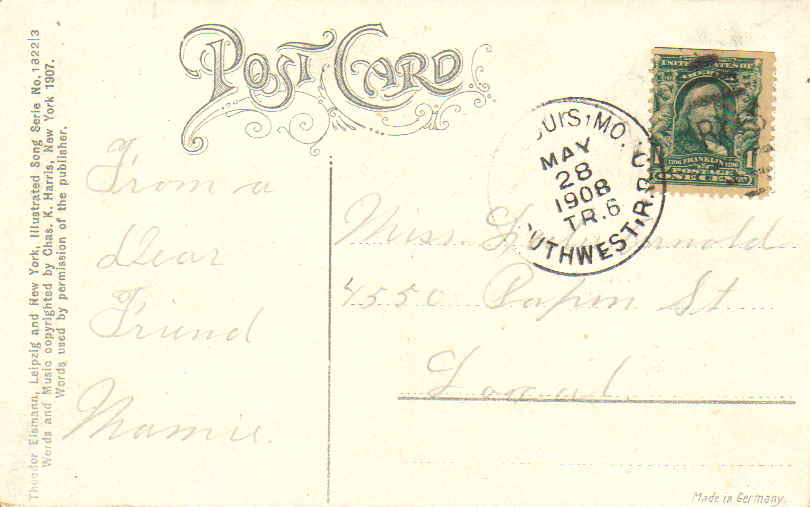 Theodor Eismann, Leipzig and New York, Illustrated Song Serie No. 1822|3
Words and Music copyrighted by Chas. K. Harris, New York 1907.
Words used by permission of the publisher.
POST CARD
UNITED STATES OF
AMERICA
1706 FRANKLIN 1790
POSTAGE
1 ONE CENT 1
OUIS, MO.
MAY
28
1908
TR. 6
UTHWEST, R.P.O.
From a
Dear
Friend
Mamie.
Miss Arnold
4550 Papin St
Local
Made in Germany.